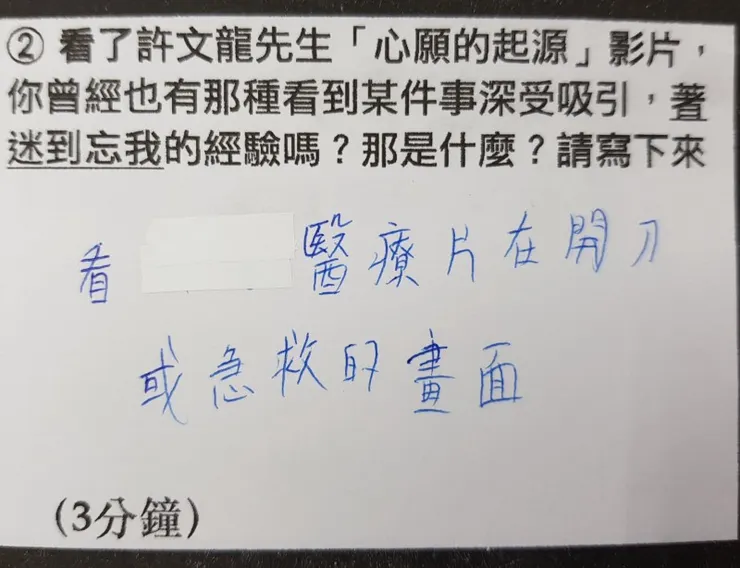 ② 看了許文龍先生「心願的起源」影片，
你曾經也有那種看到某件事深受吸引，著
迷到忘我的經驗嗎？那是什麼？請寫下來
看 醫療片在開刀
或急救的畫面
(3分鐘)